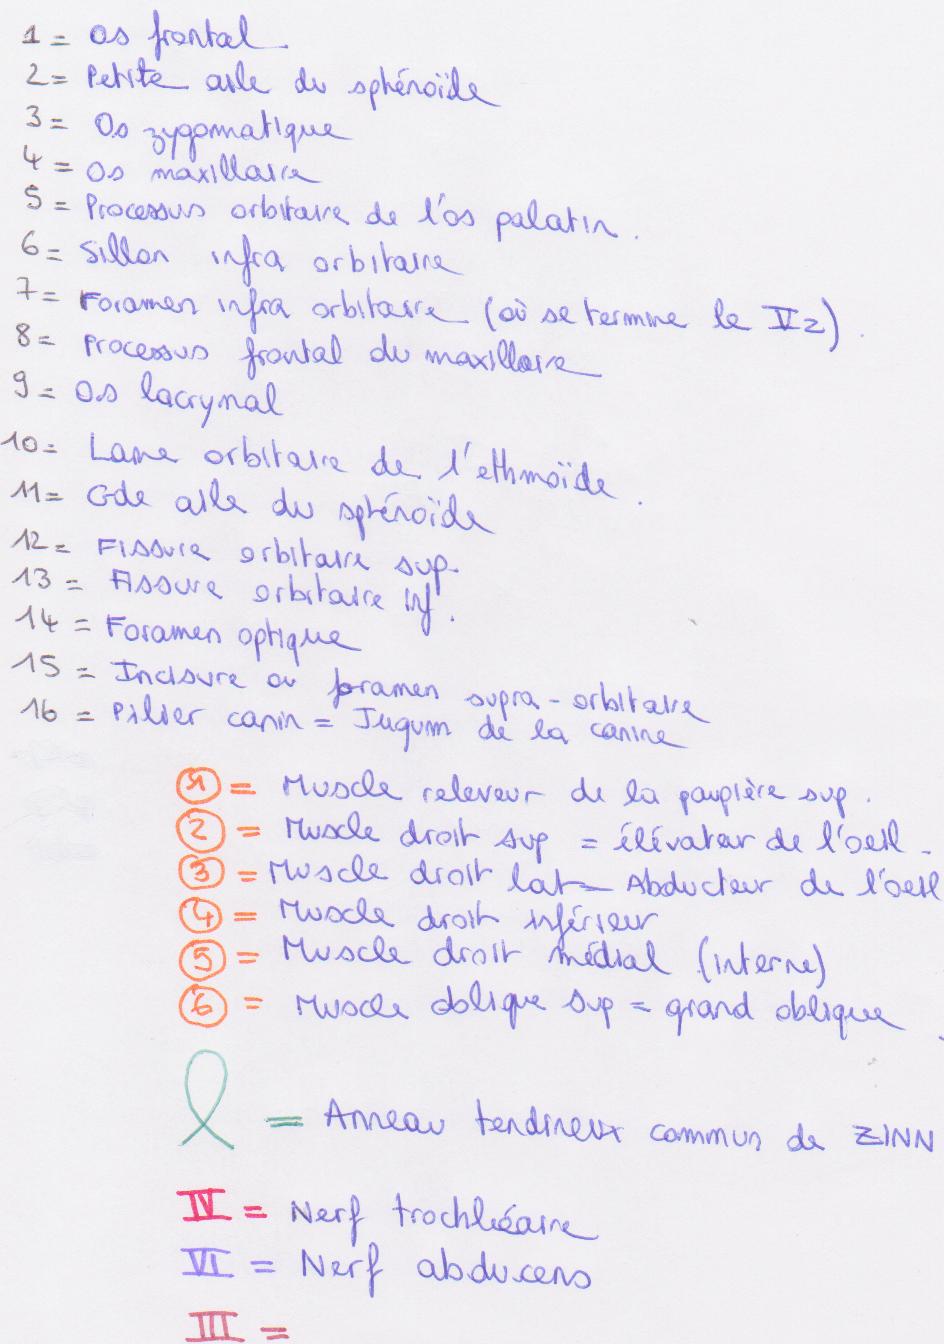 1 = Os frontal
2 = Petite aile du sphénoïde
3 = Os zygomatique
4 = Os maxillaire
5 = Processus orbitaire de l'os palatin.
6 = Sillon infra orbitaire
7 = Foramen infra orbitaire (où se termine le V2).
8 = Processus frontal du maxillaire
9 = Os lacrymal
10 = Lame orbitaire de l'ethmoïde.
11 = Gde aile du sphénoïde
12 = Fissure orbitaire sup.
13 = Fissure orbitaire inf.
14 = Foramen optique
15 = Incisure ou foramen supra-orbitaire
16 = Pilier canin = Jugum de la canine
1 = Muscle releveur de la paupière sup.
2 = Muscle droit sup = élévateur de l'oeil.
3 = Muscle droit lat = Abducteur de l'oeil
4 = Muscle droit inférieur
5 = Muscle droit médial (interne)
6 = Muscle oblique sup = grand oblique.
= Anneau tendineux commun de ZINN
IV = Nerf trochléaire
VI = Nerf abducens
III =